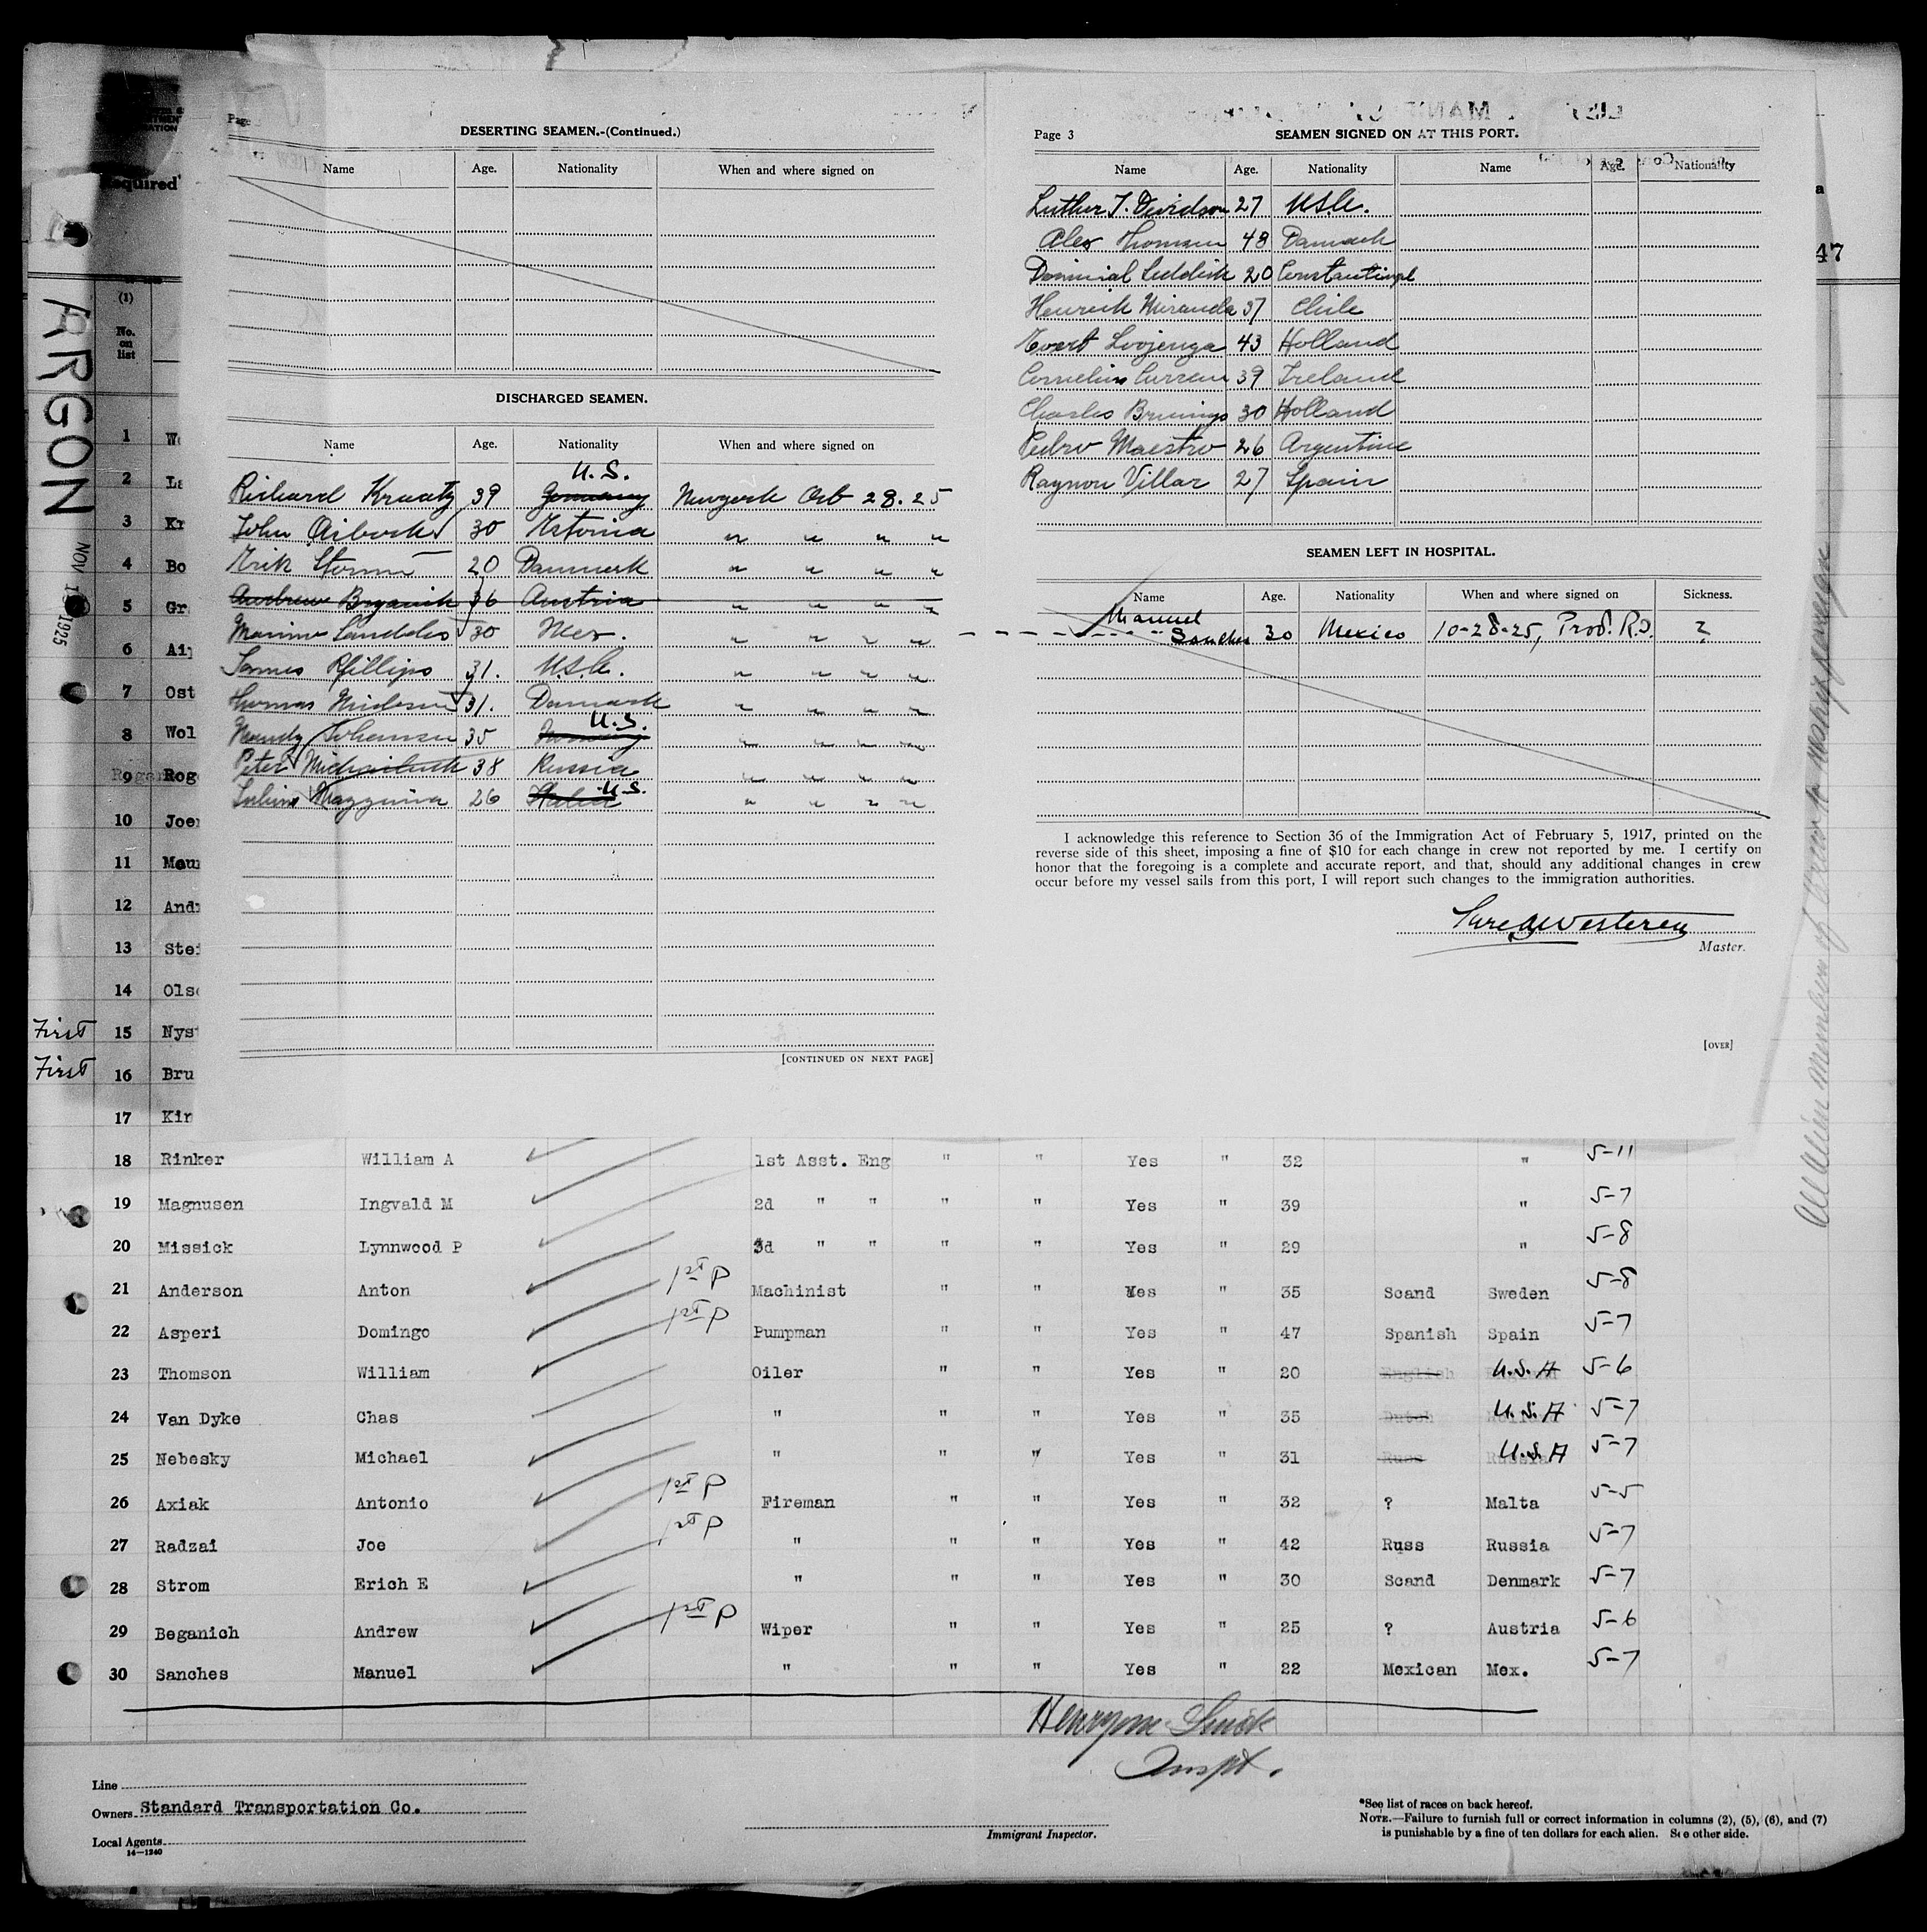 ARGON
NOV 1925
Required
47
(1)
No. on list
Page
DESERTING SEAMEN.-(Continued.)
Name Age. Nationality When and where signed on
DISCHARGED SEAMEN.
Name Age. Nationality When and where signed on
U.S.
Richard Kraatz 39 Germany Newyork Oct 28.25
John 30 Estonia " " " "
Erik Storm 20 Danmark " " " "
Andrew 36 Austria " " " "
30 Mex. " " " "
James Phillips 31. U.S.A. " " " "
Thomas 31. Danmark " " " "
U.S.
Johansen 35 Norway " " " "
Peter 38 Russia " " " "
26 Italia U.S. " " " "
[CONTINUED ON NEXT PAGE]
Page 3 SEAMEN SIGNED ON AT THIS PORT.
Name Age. Nationality Name Age. Nationality
Luther T. Davidson 27 U.S.A.
Alex Thomsen 48 Danmark
20 Constantinopel
Henrick Miranda 37 Chile
Evert 43 Holland
Cornelius Curren 39 Ireland
Charles Brunings 30 Holland
Pedro Maestro 26 Argentine
Raymon Villar 27 Spain
SEAMEN LEFT IN HOSPITAL.
Name Age. Nationality When and where signed on Sickness.
Manuel
Sanches 30 Mexico 10-28-25, Prov. R.I. ?
I acknowledge this reference to Section 36 of the Immigration Act of February 5, 1917, printed on the
reverse side of this sheet, imposing a fine of $10 for each change in crew not reported by me. I certify on
honor that the foregoing is a complete and accurate report, and that, should any additional changes in crew
occur before my vessel sails from this port, I will report such changes to the immigration authorities.
Master.
[OVER]
All Alien members of Crew
1
2 La
3 Kr
4 Bo
5 Gr
6 Ai
7 Ost
8 Wol
9 Rog
10 Joe
11
12 And
13 Ste
14 Ols
First 15 Nys
First 16 Bru
17 Kin
18 Rinker William A 1st Asst. Eng " " Yes " 32 " 5-11
19 Magnusen Ingvald M 2d " " " " Yes " 39 " 5-7
20 Missick Lynnwood P 3d " " " " Yes " 29 " 5-8
21 Anderson Anton 1st P Machinist " " Yes " 35 Scand Sweden 5-8
22 Asperi Domingo 1st P Pumpman " " Yes " 47 Spanish Spain 5-7
23 Thomson William Oiler " " Yes " 20 English U.S.A 5-6
24 Van Dyke Chas " " " Yes " 35 Dutch U.S.A 5-7
25 Nebesky Michael " " " Yes " 31 Russ U.S.A 5-7
26 Axiak Antonio 1st P Fireman " " Yes " 32 ? Malta 5-5
27 Radzai Joe 1st P " " " Yes " 42 Russ Russia 5-7
28 Strom Erich E " " " Yes " 30 Scand Denmark 5-7
29 Beganich Andrew 1st P Wiper " " Yes " 25 ? Austria 5-6
30 Sanches Manuel " " " Yes " 22 Mexican Mex. 5-7
Inspt.
Line
Owners Standard Transportation Co.
Local Agents
14-1240
Immigrant Inspector.
*See list of races on back hereof.
NOTE.—Failure to furnish full or correct information in columns (2), (5), (6), and (7)
is punishable by a fine of ten dollars for each alien. See other side.